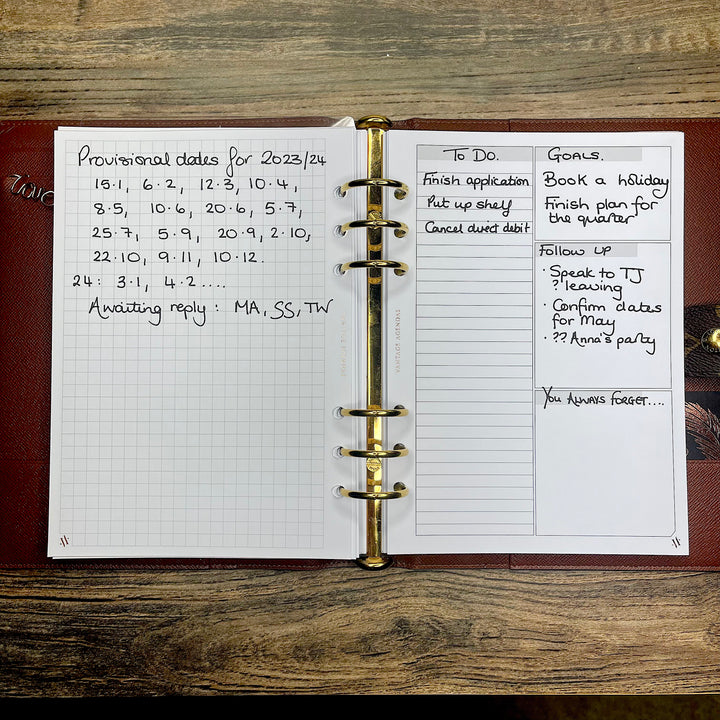 Provisional dates for 2023/24
15·1, 6·2, 12·3, 10·4,
8·5, 10·6, 20·6, 5·7,
25·7, 5·9, 20·9, 2·10,
22·10, 9·11, 10·12.
24: 3·1, 4·2....
Awaiting reply: MA, SS, TW
VANTAGE AGENDAS
To Do.
Finish application
Put up shelf
Cancel direct debit
GOALS.
Book a holiday
Finish plan for
the quarter
FOLLOW UP
· Speak to TJ
? leaving
· Confirm dates
for May
· ?? Anna's party
YOU ALWAYS FORGET....